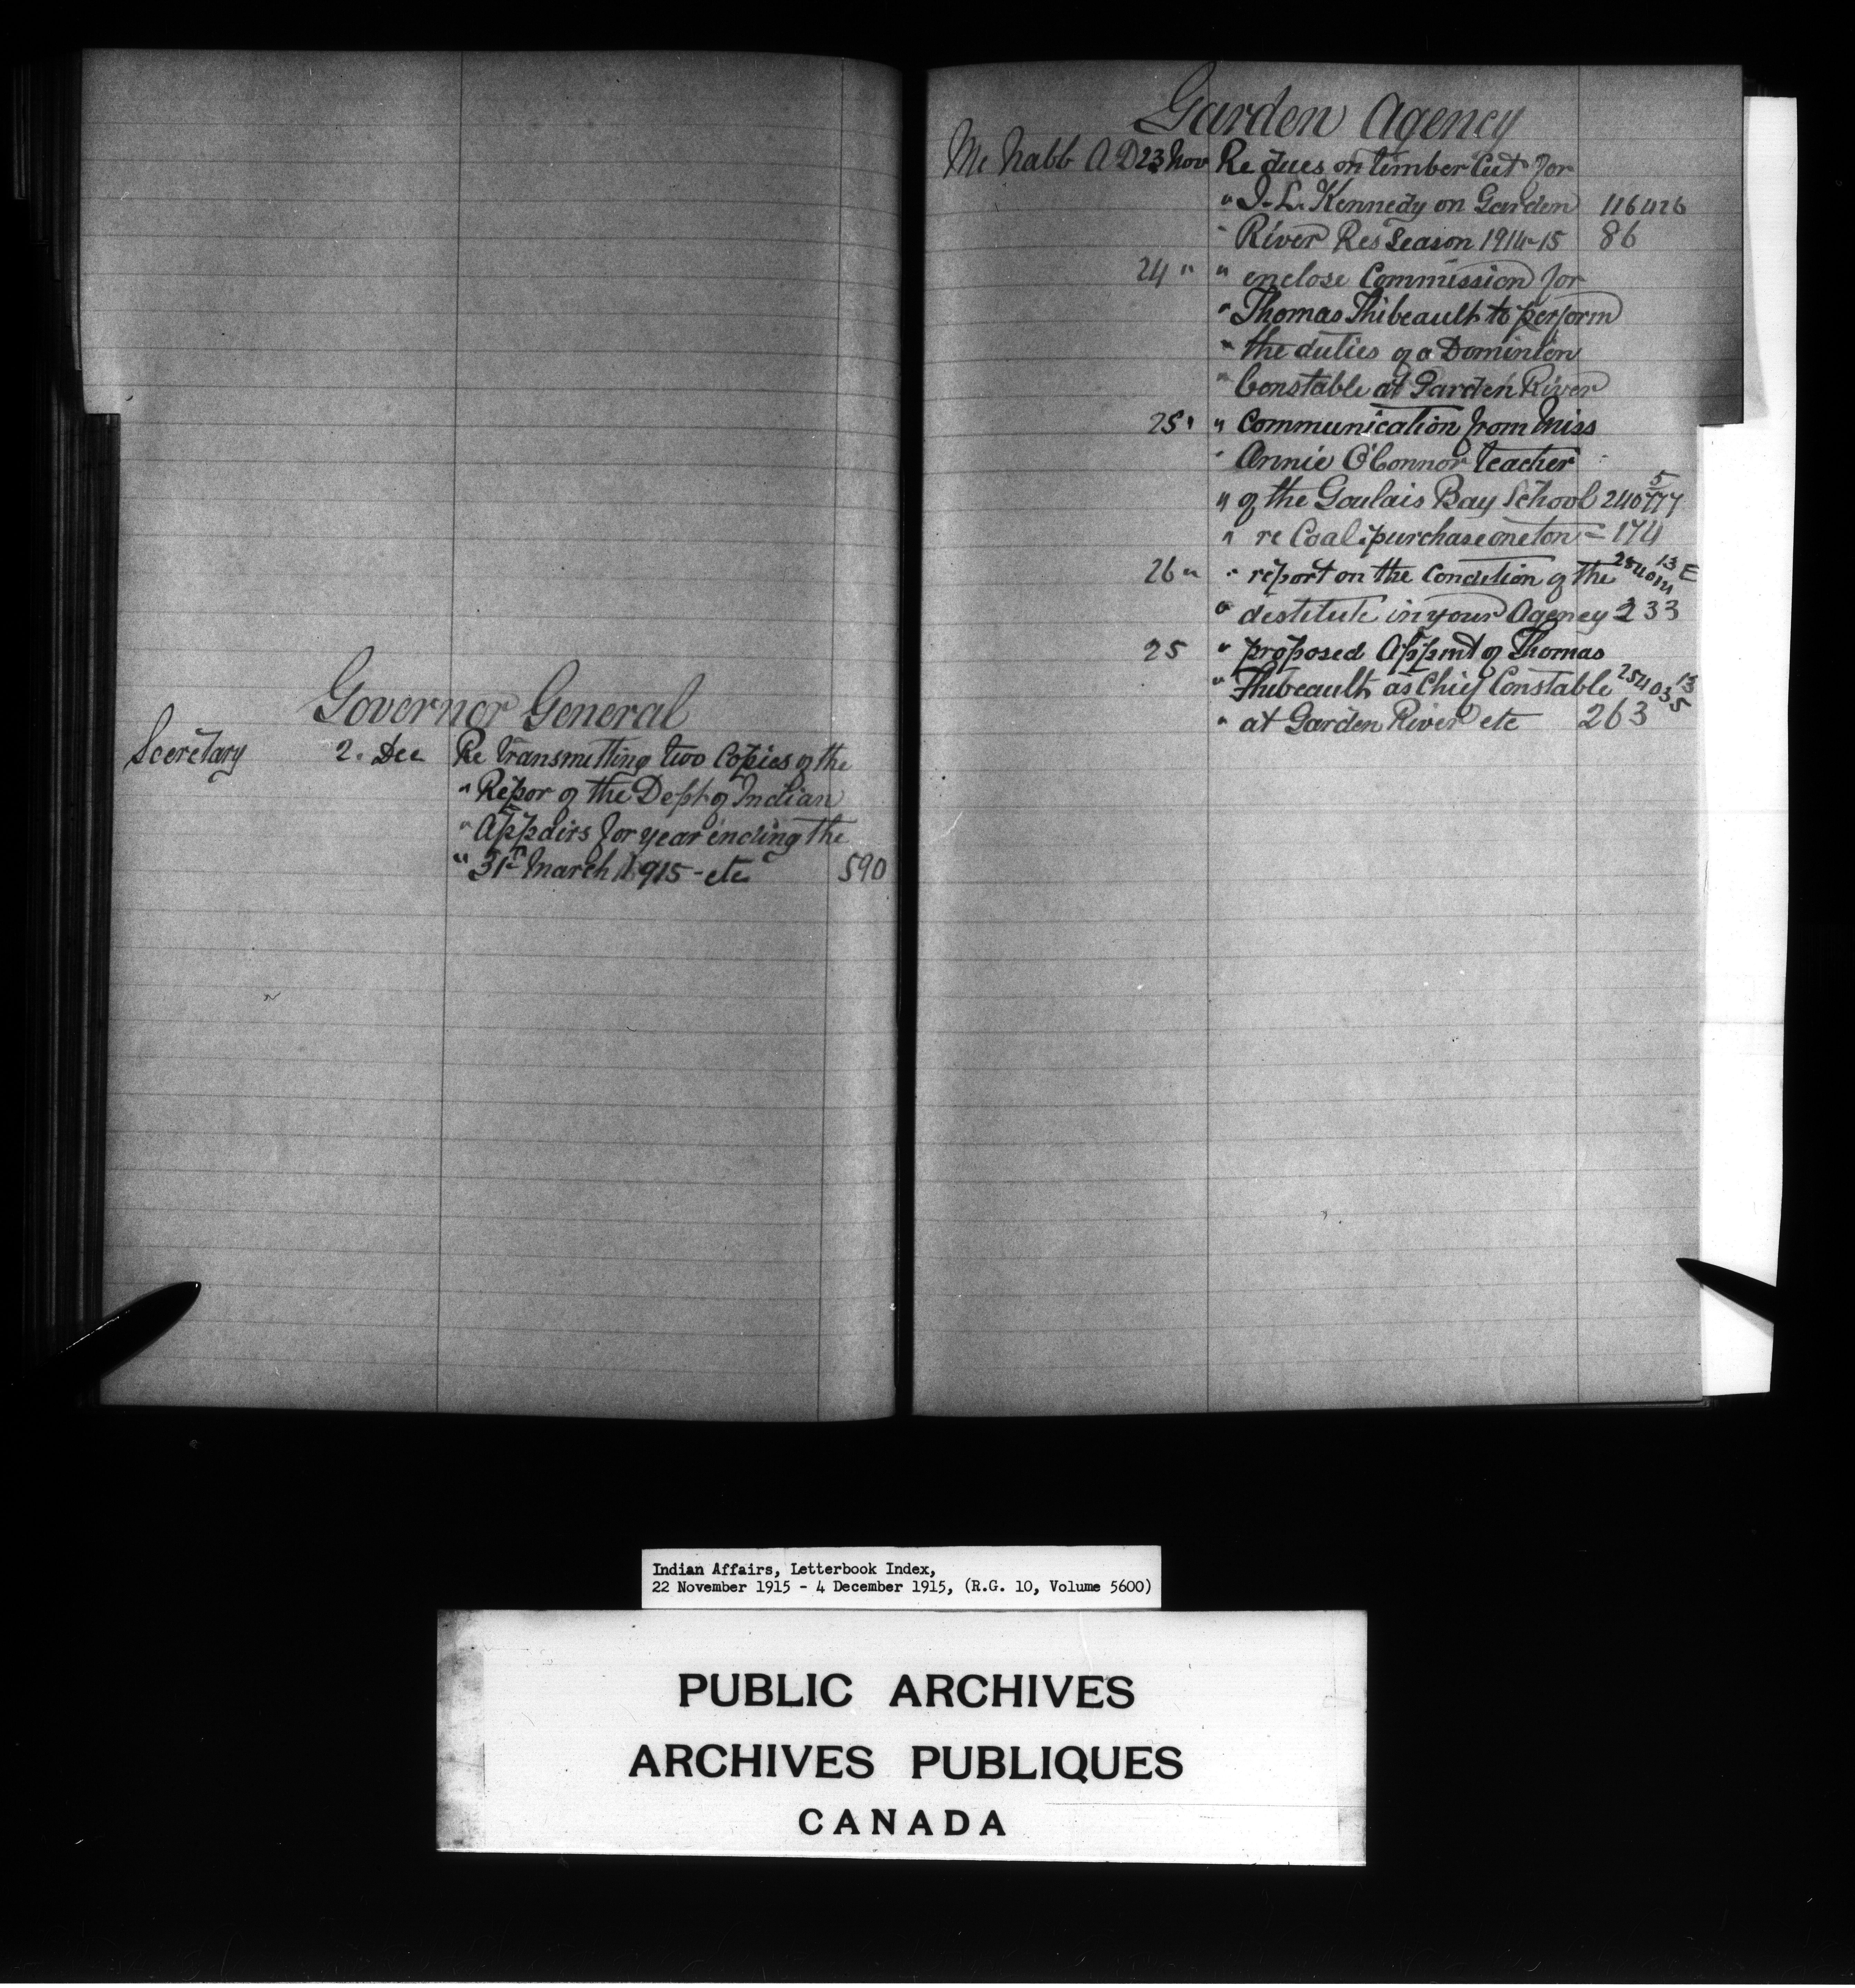 Governor General
Secretary 2. Dec Re transmitting two Copies of the
" Repor of the Dept of Indian
" Affairs for year ending the
" 31st March 1915 - etc 590
Garden Agency
Mc Nabb A D 23 Nov Re dues on timber Cut for
" I. L. Kennedy on Garden 116426
" River Res Season 1914-15 86
24 " " enclose Commission for
" Thomas Thibeault to perform
" the duties of a Dominion
" Constable at Garden River
25 " " Communication from Miss
" Annie O'Connor teacher
" of the Goulais Bay School 240777 5
" re Coal. purchase one ton = 174
26 " " report on the Condition of the 13 E
" destitute in your Agency 233
25 " proposed Appmt of Thomas
" Thibeault as Chief Constable 254035 13
" at Garden River etc 263
Indian Affairs, Letterbook Index,
22 November 1915 - 4 December 1915, (R.G. 10, Volume 5600)
PUBLIC ARCHIVES
ARCHIVES PUBLIQUES
CANADA